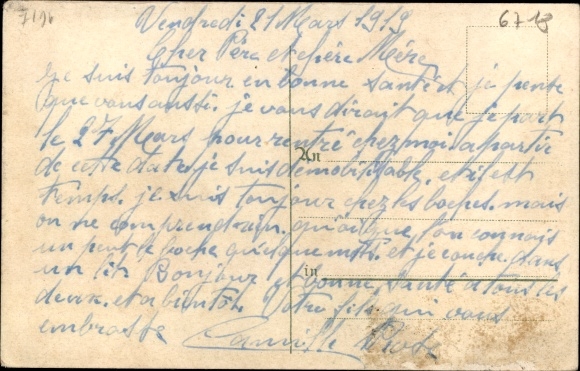 7196
6718
Vendredi 21 Mars 1919
Cher Père et chère Mère
Je suis toujour en bonne santé et je pense
que vous aussi. je vous dirait que je part
le 27 Mars pour rentré chez moi. a partir
de cette date je suis demobilisable. et il est
temps. je suis toujour chez les boches. mais
on ne comprend rien. quoique l'on connais
un peut le boche quelque mots. et je couche dans
un lit. Bonjour et bonne santé a tous les
deux. et a bientôt Votre fils qui vous
embrasse Camille
An
in